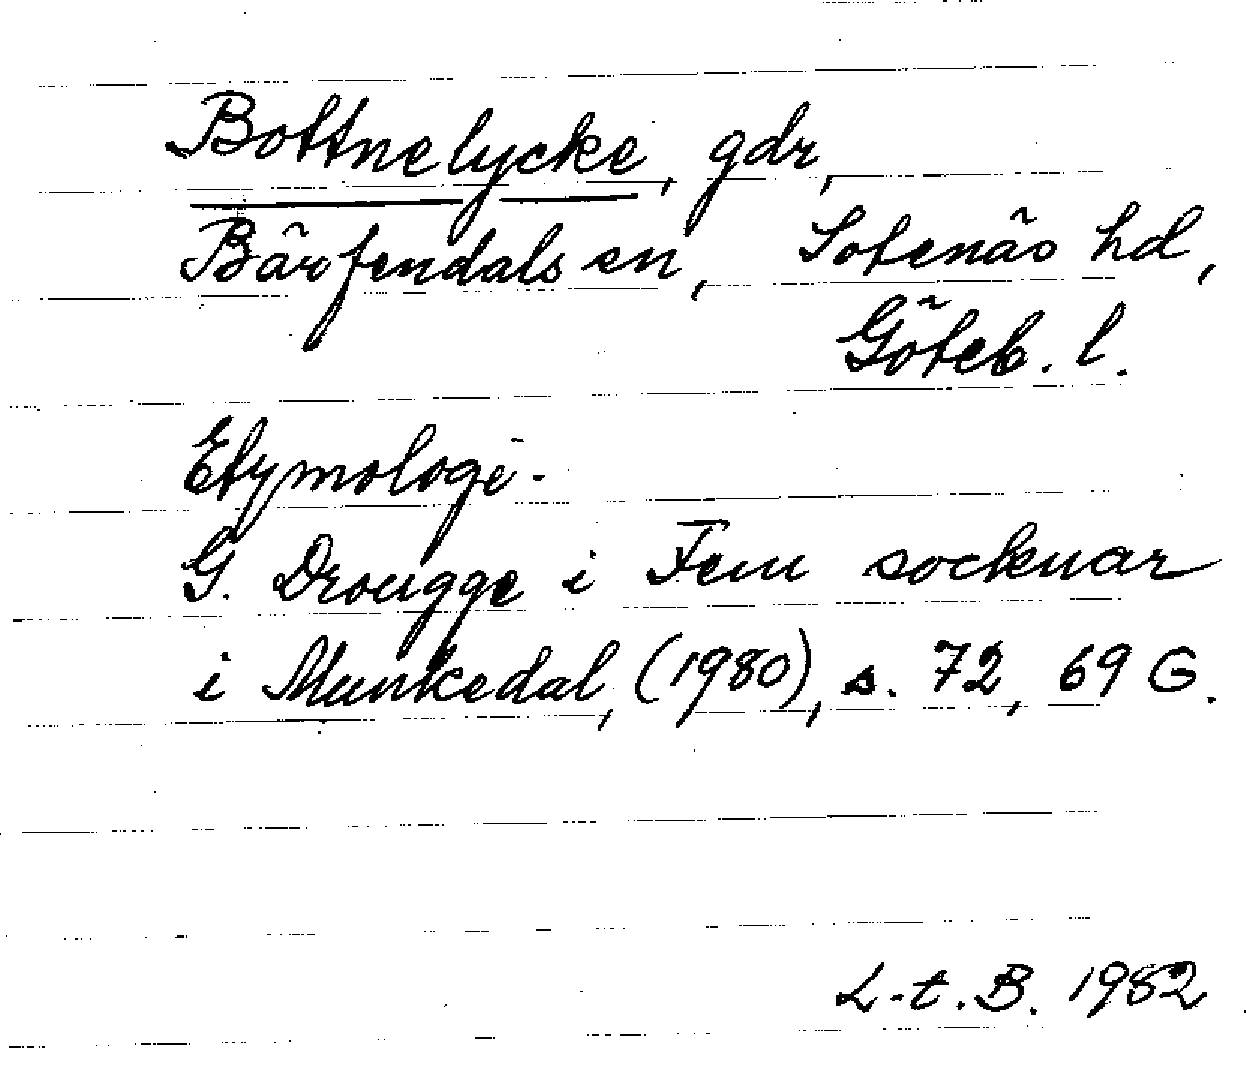 Bottnelycke, gdr,
Bärfendals sn, Sotenäs hd,
Göteb. l.
Etymologi.
G. Drougge i Fem socknar
i Munkedal, (1980), s. 72, 69 G.
L-t. B. 1982